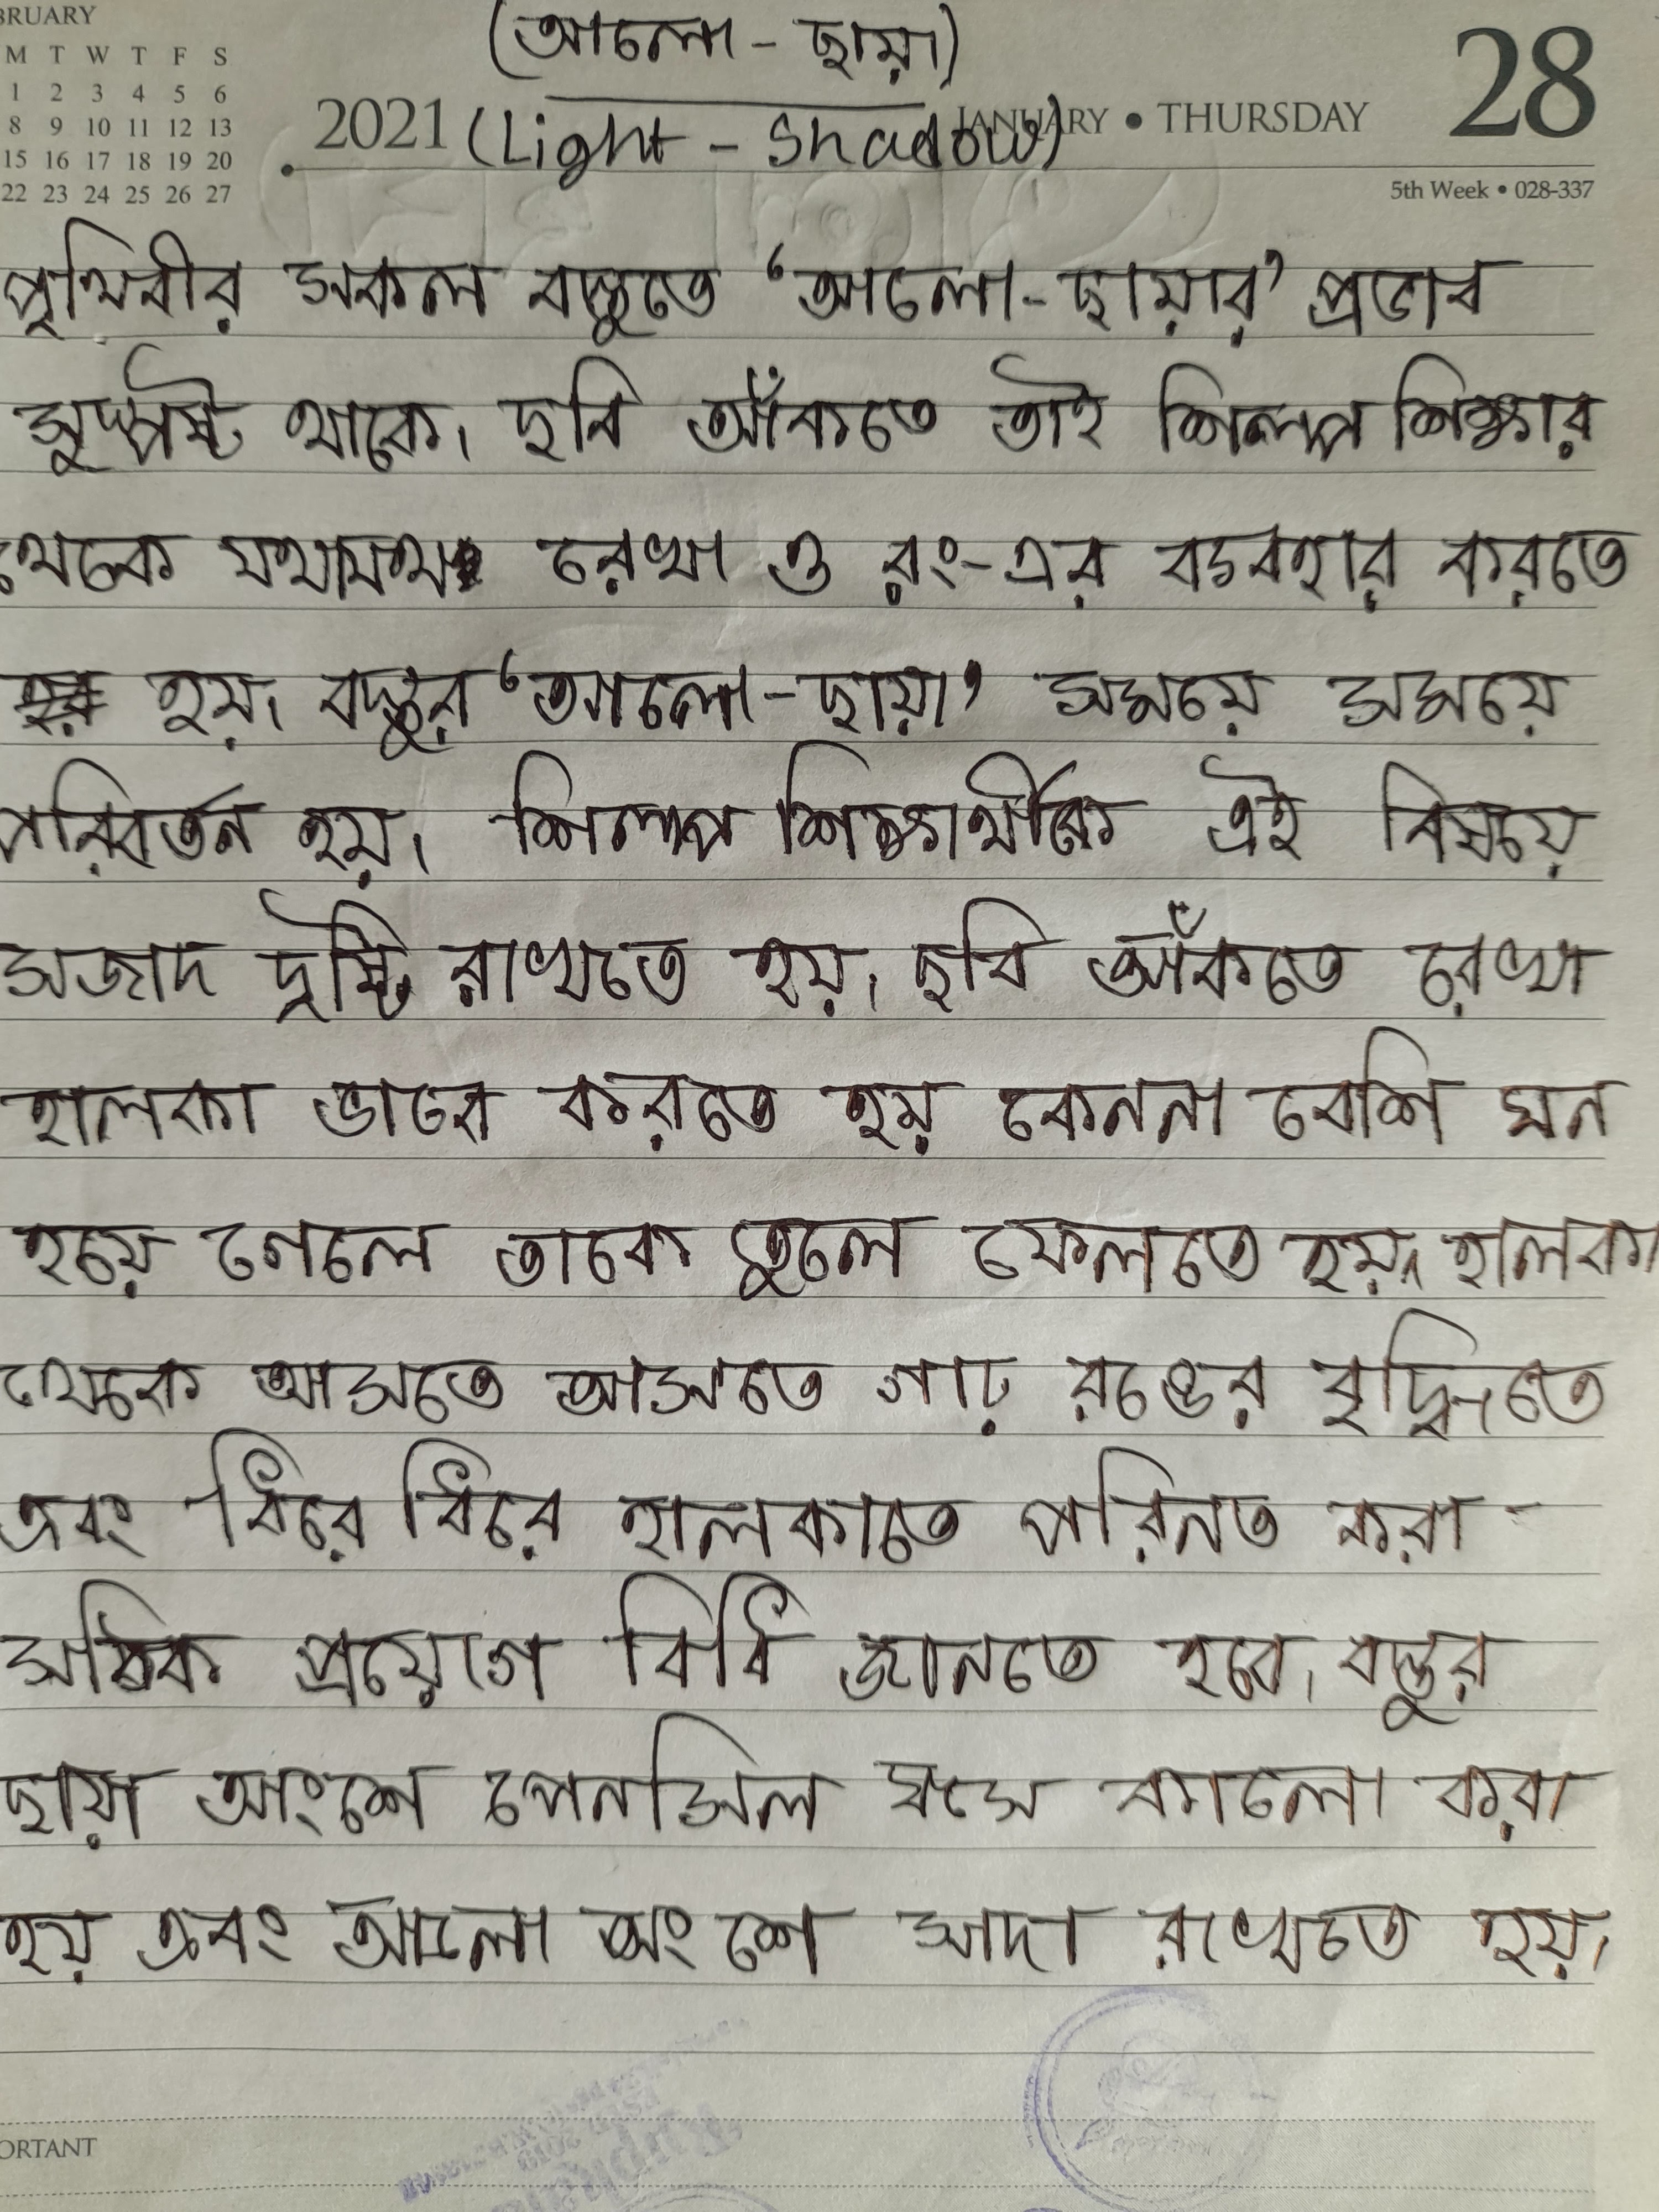 BRUARY
(আলো - ছায়া)
28
M T W T F S
1 2 3 4 5 6
2021 JANUARY • THURSDAY
(Light - Shadow)
8 9 10 11 12 13
15 16 17 18 19 20
22 23 24 25 26 27
5th Week • 028-337
পৃথিবীর সকল বস্তুতে ‘আলো-ছায়ার’ প্রভাব
সুস্পষ্ট থাকে। ছবি আঁকতে তাই শিল্প শিক্ষার
থেকে যথাযথ রেখা ও রং-এর ব্যবহার করতে
হয়। বস্তুর ‘আলো-ছায়া’ সময়ে সময়ে
পরিবর্তন হয়। শিল্প শিক্ষার্থীকে এই বিষয়ে
সজাগ দৃষ্টি রাখতে হয়। ছবি আঁকতে রেখা
হালকা ভাবে করতে হয় কেননা বেশি ঘন
হয়ে গেলে তাকে তুলে ফেলতে হয়। হালকা
থেকে আসতে আসতে গাঢ় রঙের বৃদ্ধিতে
এবং ধিরে ধিরে হালকাতে পরিনত করা
সঠিক প্রয়োগে বিধি জানতে হবে। বস্তুর
ছায়া অংশে পেনসিল ঘসে কালো করা
হয় এবং আলো অংশে সাদা রাখতে হয়।
ORTANT